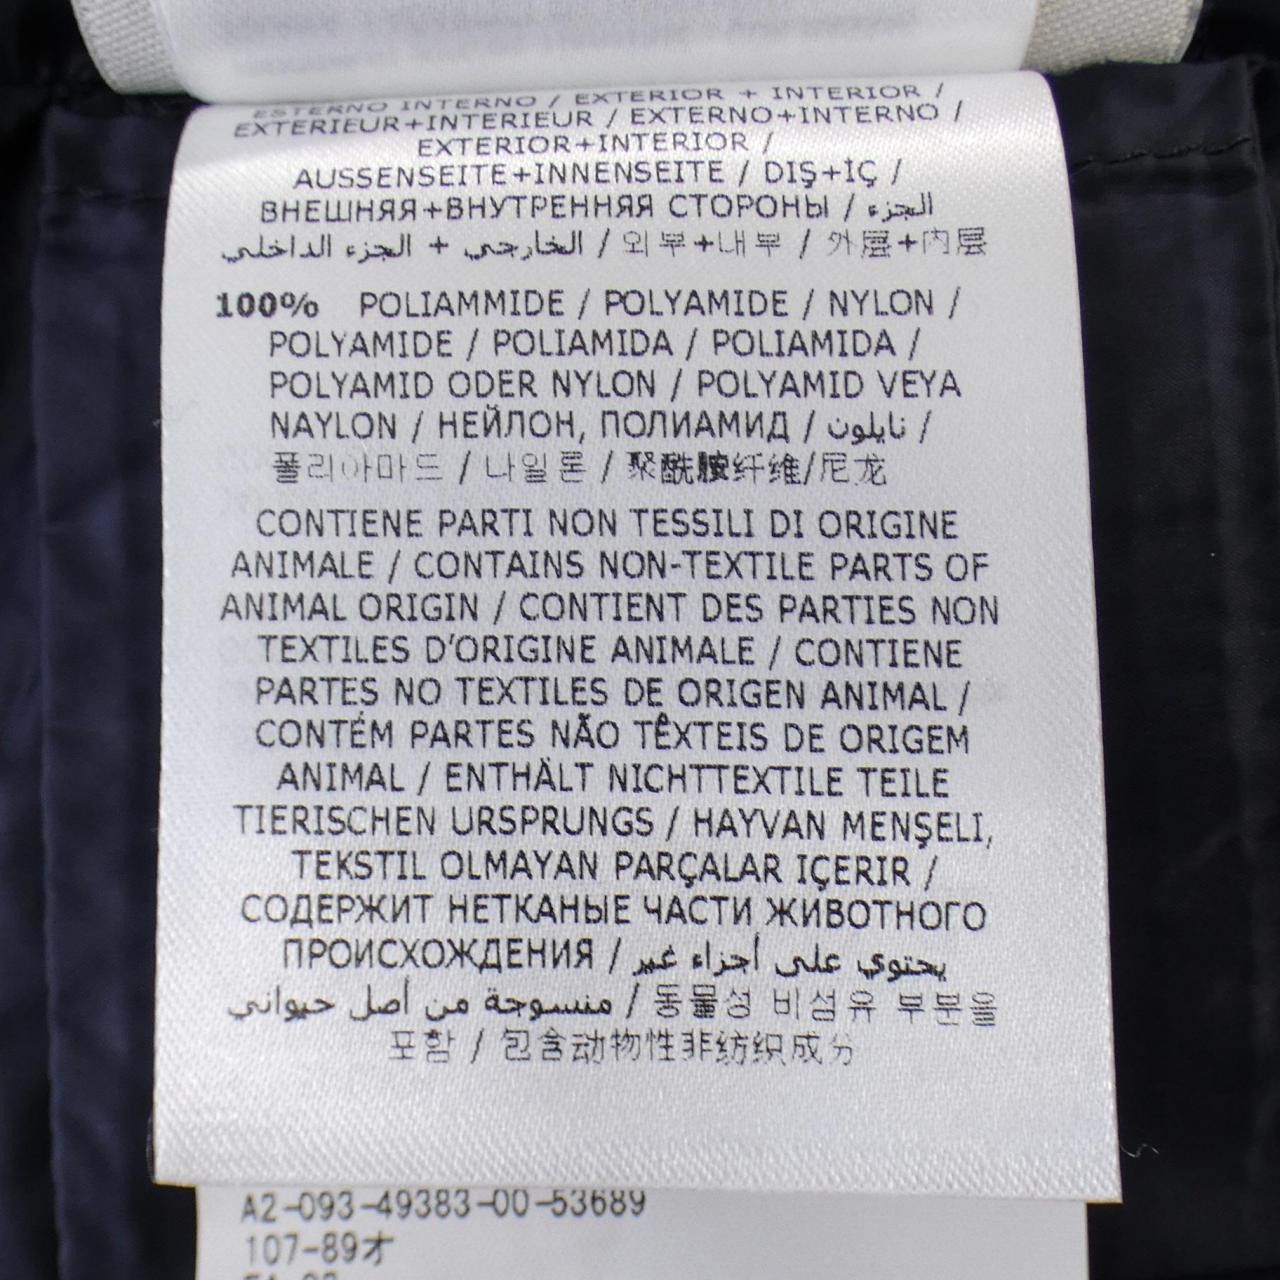 ESTERNO INTERNO / EXTERIOR + INTERIOR /
EXTERIEUR+INTERIEUR / EXTERNO+INTERNO /
EXTERIOR+INTERIOR /
AUSSENSEITE+INNENSEITE / DIŞ+İÇ /
ВНЕШНЯЯ+ВНУТРЕННЯЯ СТОРОНЫ / الجزء
الخارجي + الجزء الداخلي / 외부+내부 / 外层+内层
100% POLIAMMIDE / POLYAMIDE / NYLON /
POLYAMIDE / POLIAMIDA / POLIAMIDA /
POLYAMID ODER NYLON / POLYAMID VEYA
NAYLON / НЕЙЛОН, ПОЛИАМИД / نايلون /
폴리아마드 / 나일론 / 聚酰胺纤维/尼龙
CONTIENE PARTI NON TESSILI DI ORIGINE
ANIMALE / CONTAINS NON-TEXTILE PARTS OF
ANIMAL ORIGIN / CONTIENT DES PARTIES NON
TEXTILES D'ORIGINE ANIMALE / CONTIENE
PARTES NO TEXTILES DE ORIGEN ANIMAL /
CONTÉM PARTES NÃO TÊXTEIS DE ORIGEM
ANIMAL / ENTHÄLT NICHTTEXTILE TEILE
TIERISCHEN URSPRUNGS / HAYVAN MENŞELI,
TEKSTIL OLMAYAN PARÇALAR IÇERIR /
СОДЕРЖИТ НЕТКАНЫЕ ЧАСТИ ЖИВОТНОГО
ПРОИСХОЖДЕНИЯ / يحتوي على أجزاء غير
منسوجة من أصل حيواني / 동물성 비섬유 부분을
포함 / 包含动物性非纺织成分
A2-093-49383-00-53689
107-89才